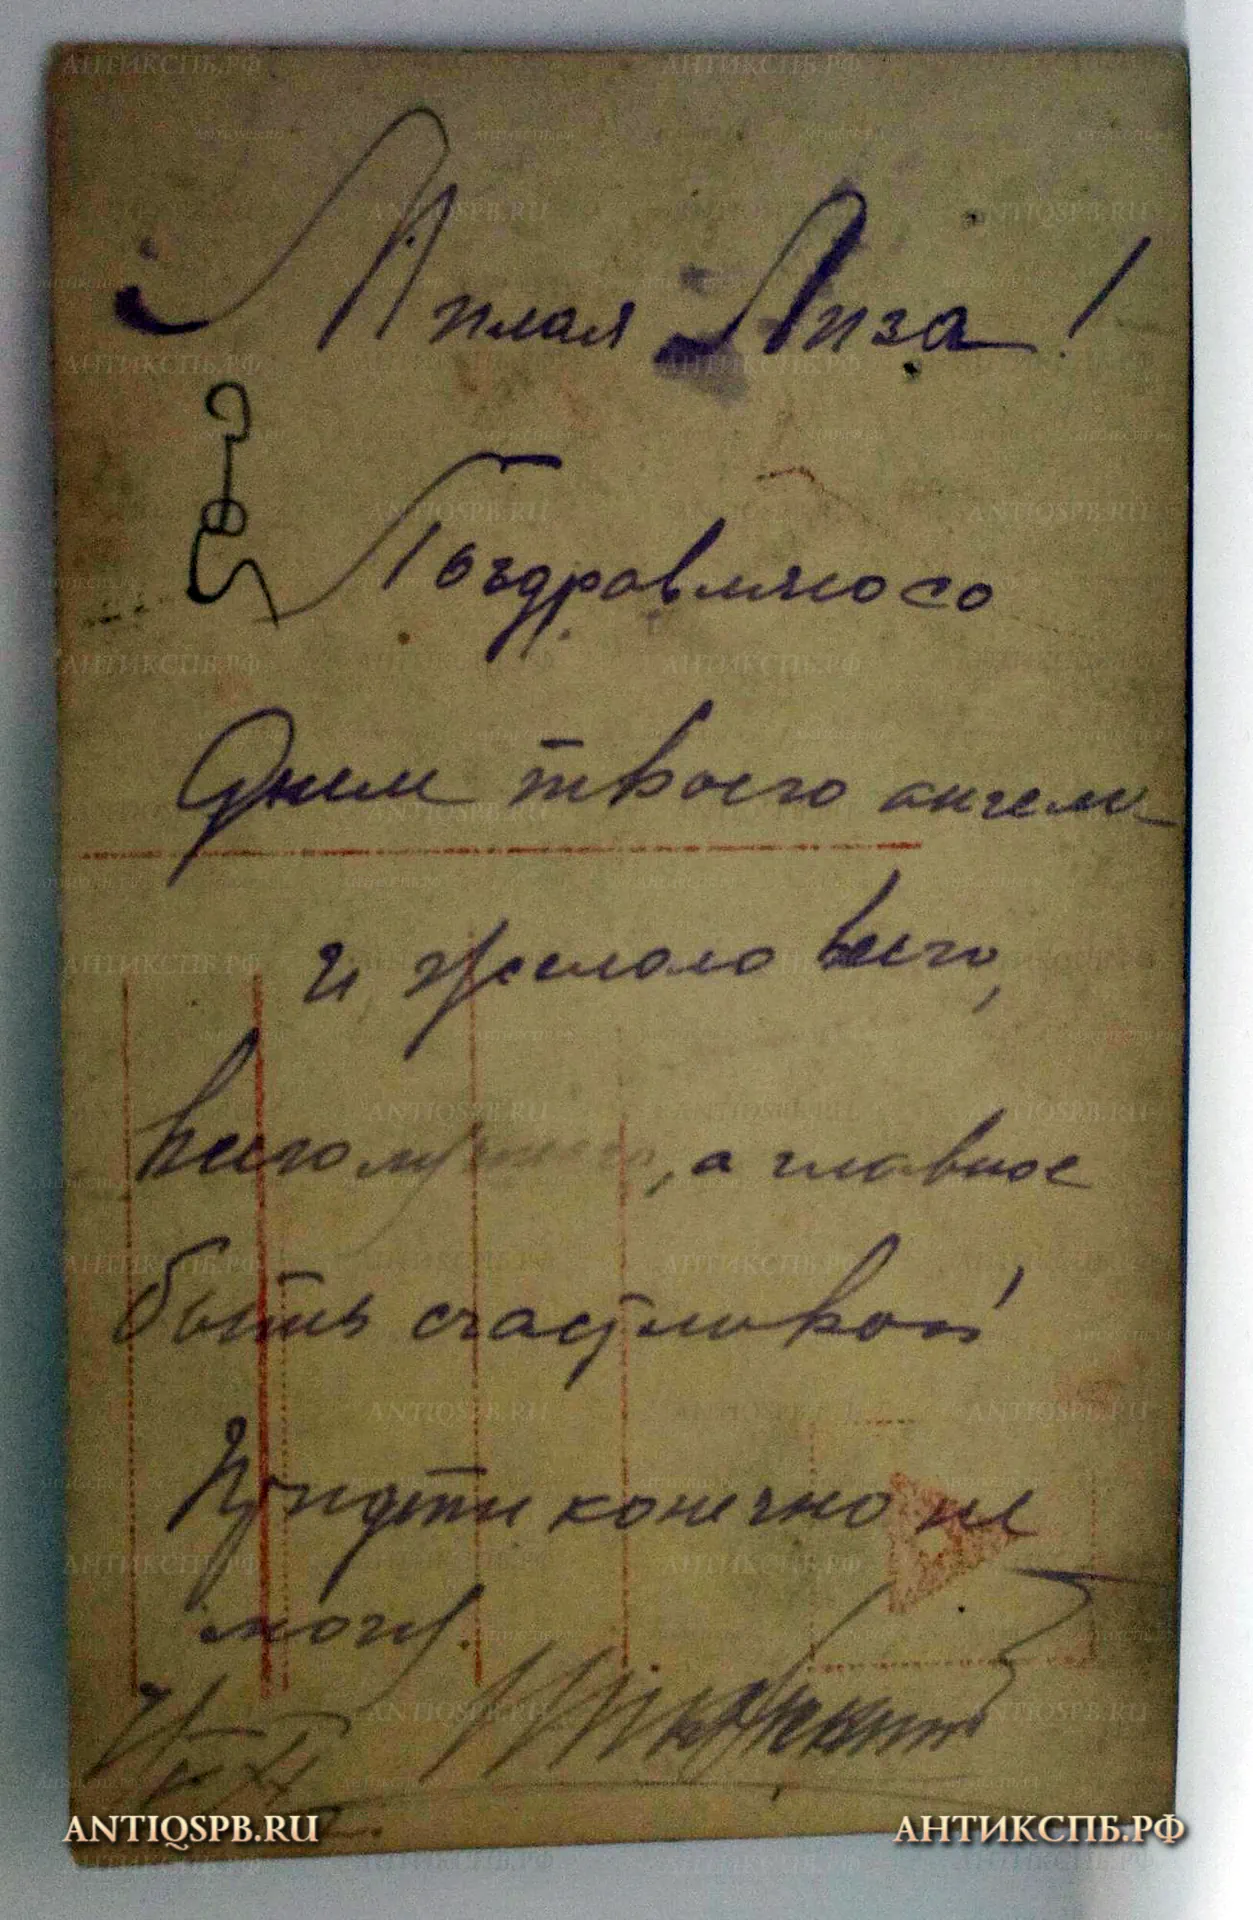 Милая Лиза!
Поздравляю со
Днем твоего ангела
и желаю всего,
всего лучшего, а главное
быть счастливой
Придти конечно не
могу.
ANTIQSPB.RU
АНТИКСПБ.РФ